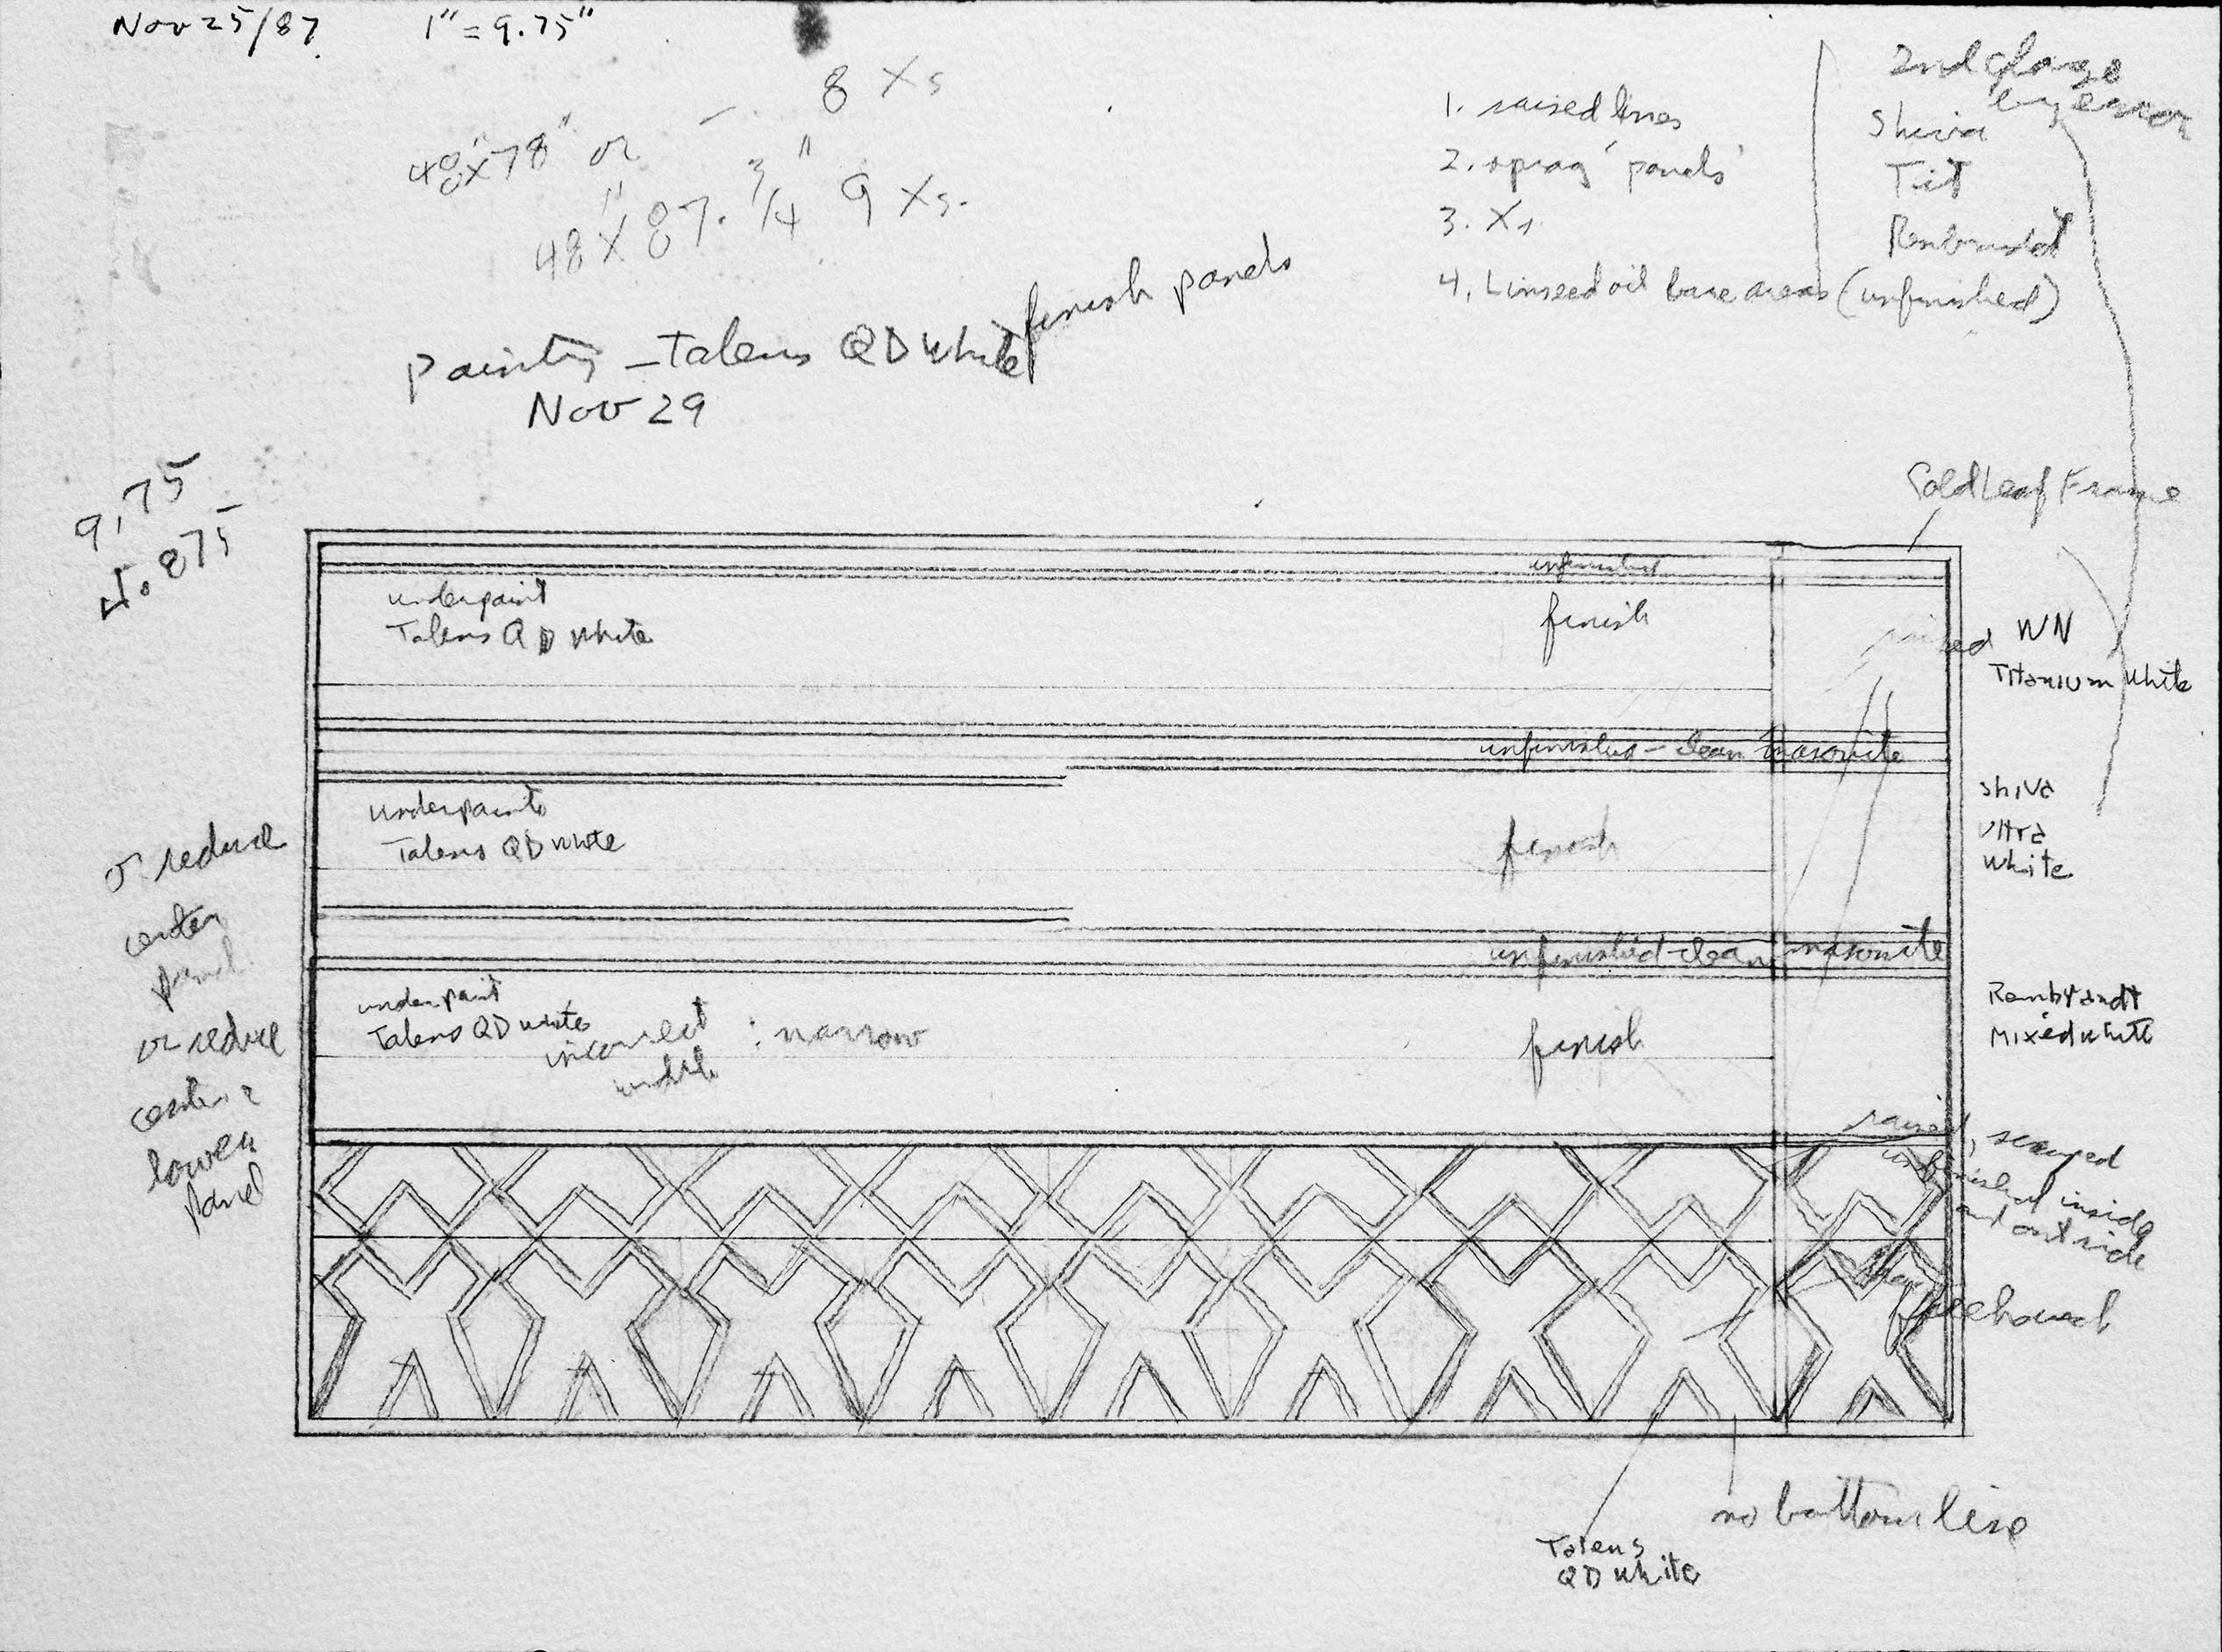 Nov 25/87 1" = 9.75"
8 Xs
48"x78" or
48"x 87. 3/4" 9 Xs.
painting - Talens QD white finish panels
Nov 29
1. raised lines
2. spray 'panels'
3. Xs
4. Linseed oil bare areas (unfinished)
2nd glaze
by error
Shiva
Tit
Rembrandt
9.75
4.875
Gold Leaf Frame
unfinished
underpaint
Talens QD white
finish
raised
WN
Titanium white
unfinished - clean masonite
underpaint
Talens QD white
finish
Shiva
Ultra
White
or reduce
center
panel
unfinished - clean masonite
underpaint
Talens QD white
incorrect
width : narrow
finish
Rembrandt
Mixed white
or reduce
center &
lower
panel
raised, scraped
unfinished inside
and outside
no bottom line
Talens
QD white